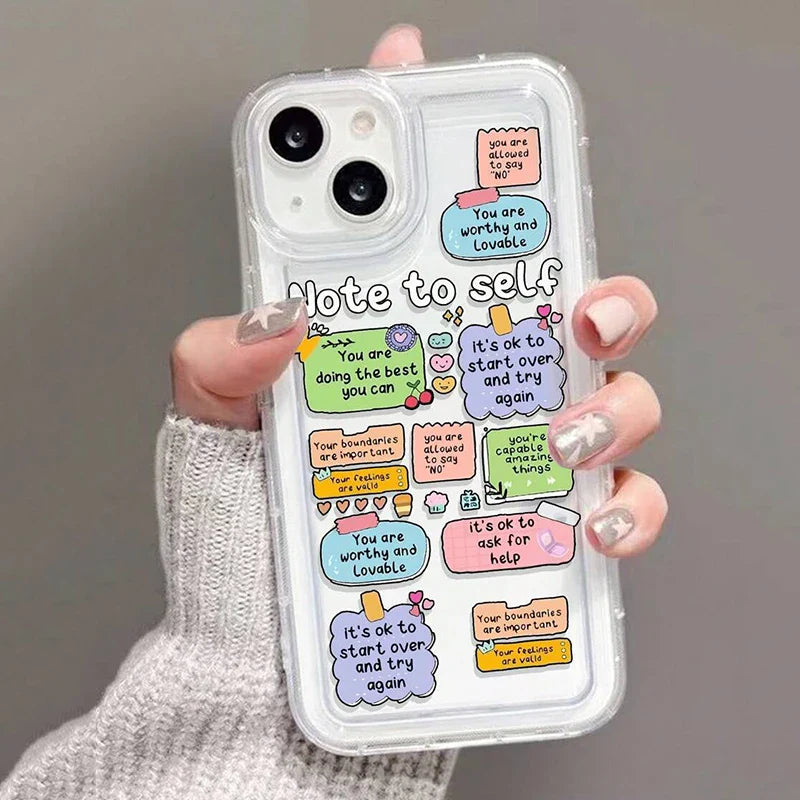 you are
allowed
to say
"NO"
You are
worthy and
Lovable
Note to self
You are
doing the best
you can
it's ok to
start over
and try
again
Your boundaries
are important
Your feelings
are valid
you are
allowed
to say
"NO"
you're
capable
amazing
things
You are
worthy and
Lovable
it's ok to
ask for
help
it's ok to
start over
and try
again
Your boundaries
are important
Your feelings
are valid